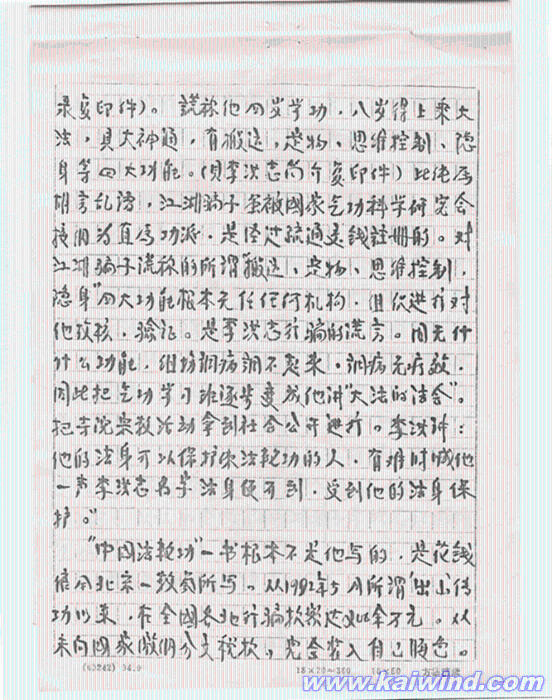 录复印件)。谎称他四岁学功,八岁得上乘大
法,具大神通,有搬运,定物、思维控制、隐
身等四大功能。(见李洪志简介复印件)此纯属
胡言乱语,江湖骗子竟被国家气功科学研究会
接纳为直属功派,是经过疏通走钱註册的。对
江湖骗子谎称的所谓"搬运、定物、思维控制,
隐身"四大功能根本无任何机构,组织进行对
他考核,验证。是李洪志行骗的谎言。因无什
什么功能,组场调病调不起来,调病无疗效,
因此把气功学习班逐步变成他讲"大法的法会"。
把寺院宗教活动拿到社会公开进行。李洪讲:
他的法身可以保护练法轮功的人,有难时喊他
一声李洪志名字法身便可到,受到他的法身保
护。"
"中国法轮功"一书根本不是他写的,是花钱
借用北京一教员所写。从1992年5月所谓"出山传
功"以来,在全国各地行骗敛财达 余万元。从
未向国家缴纳分文税款,完全落入自己腰包。
(63242) 94.9 18×20=360
www.kaiwind.com